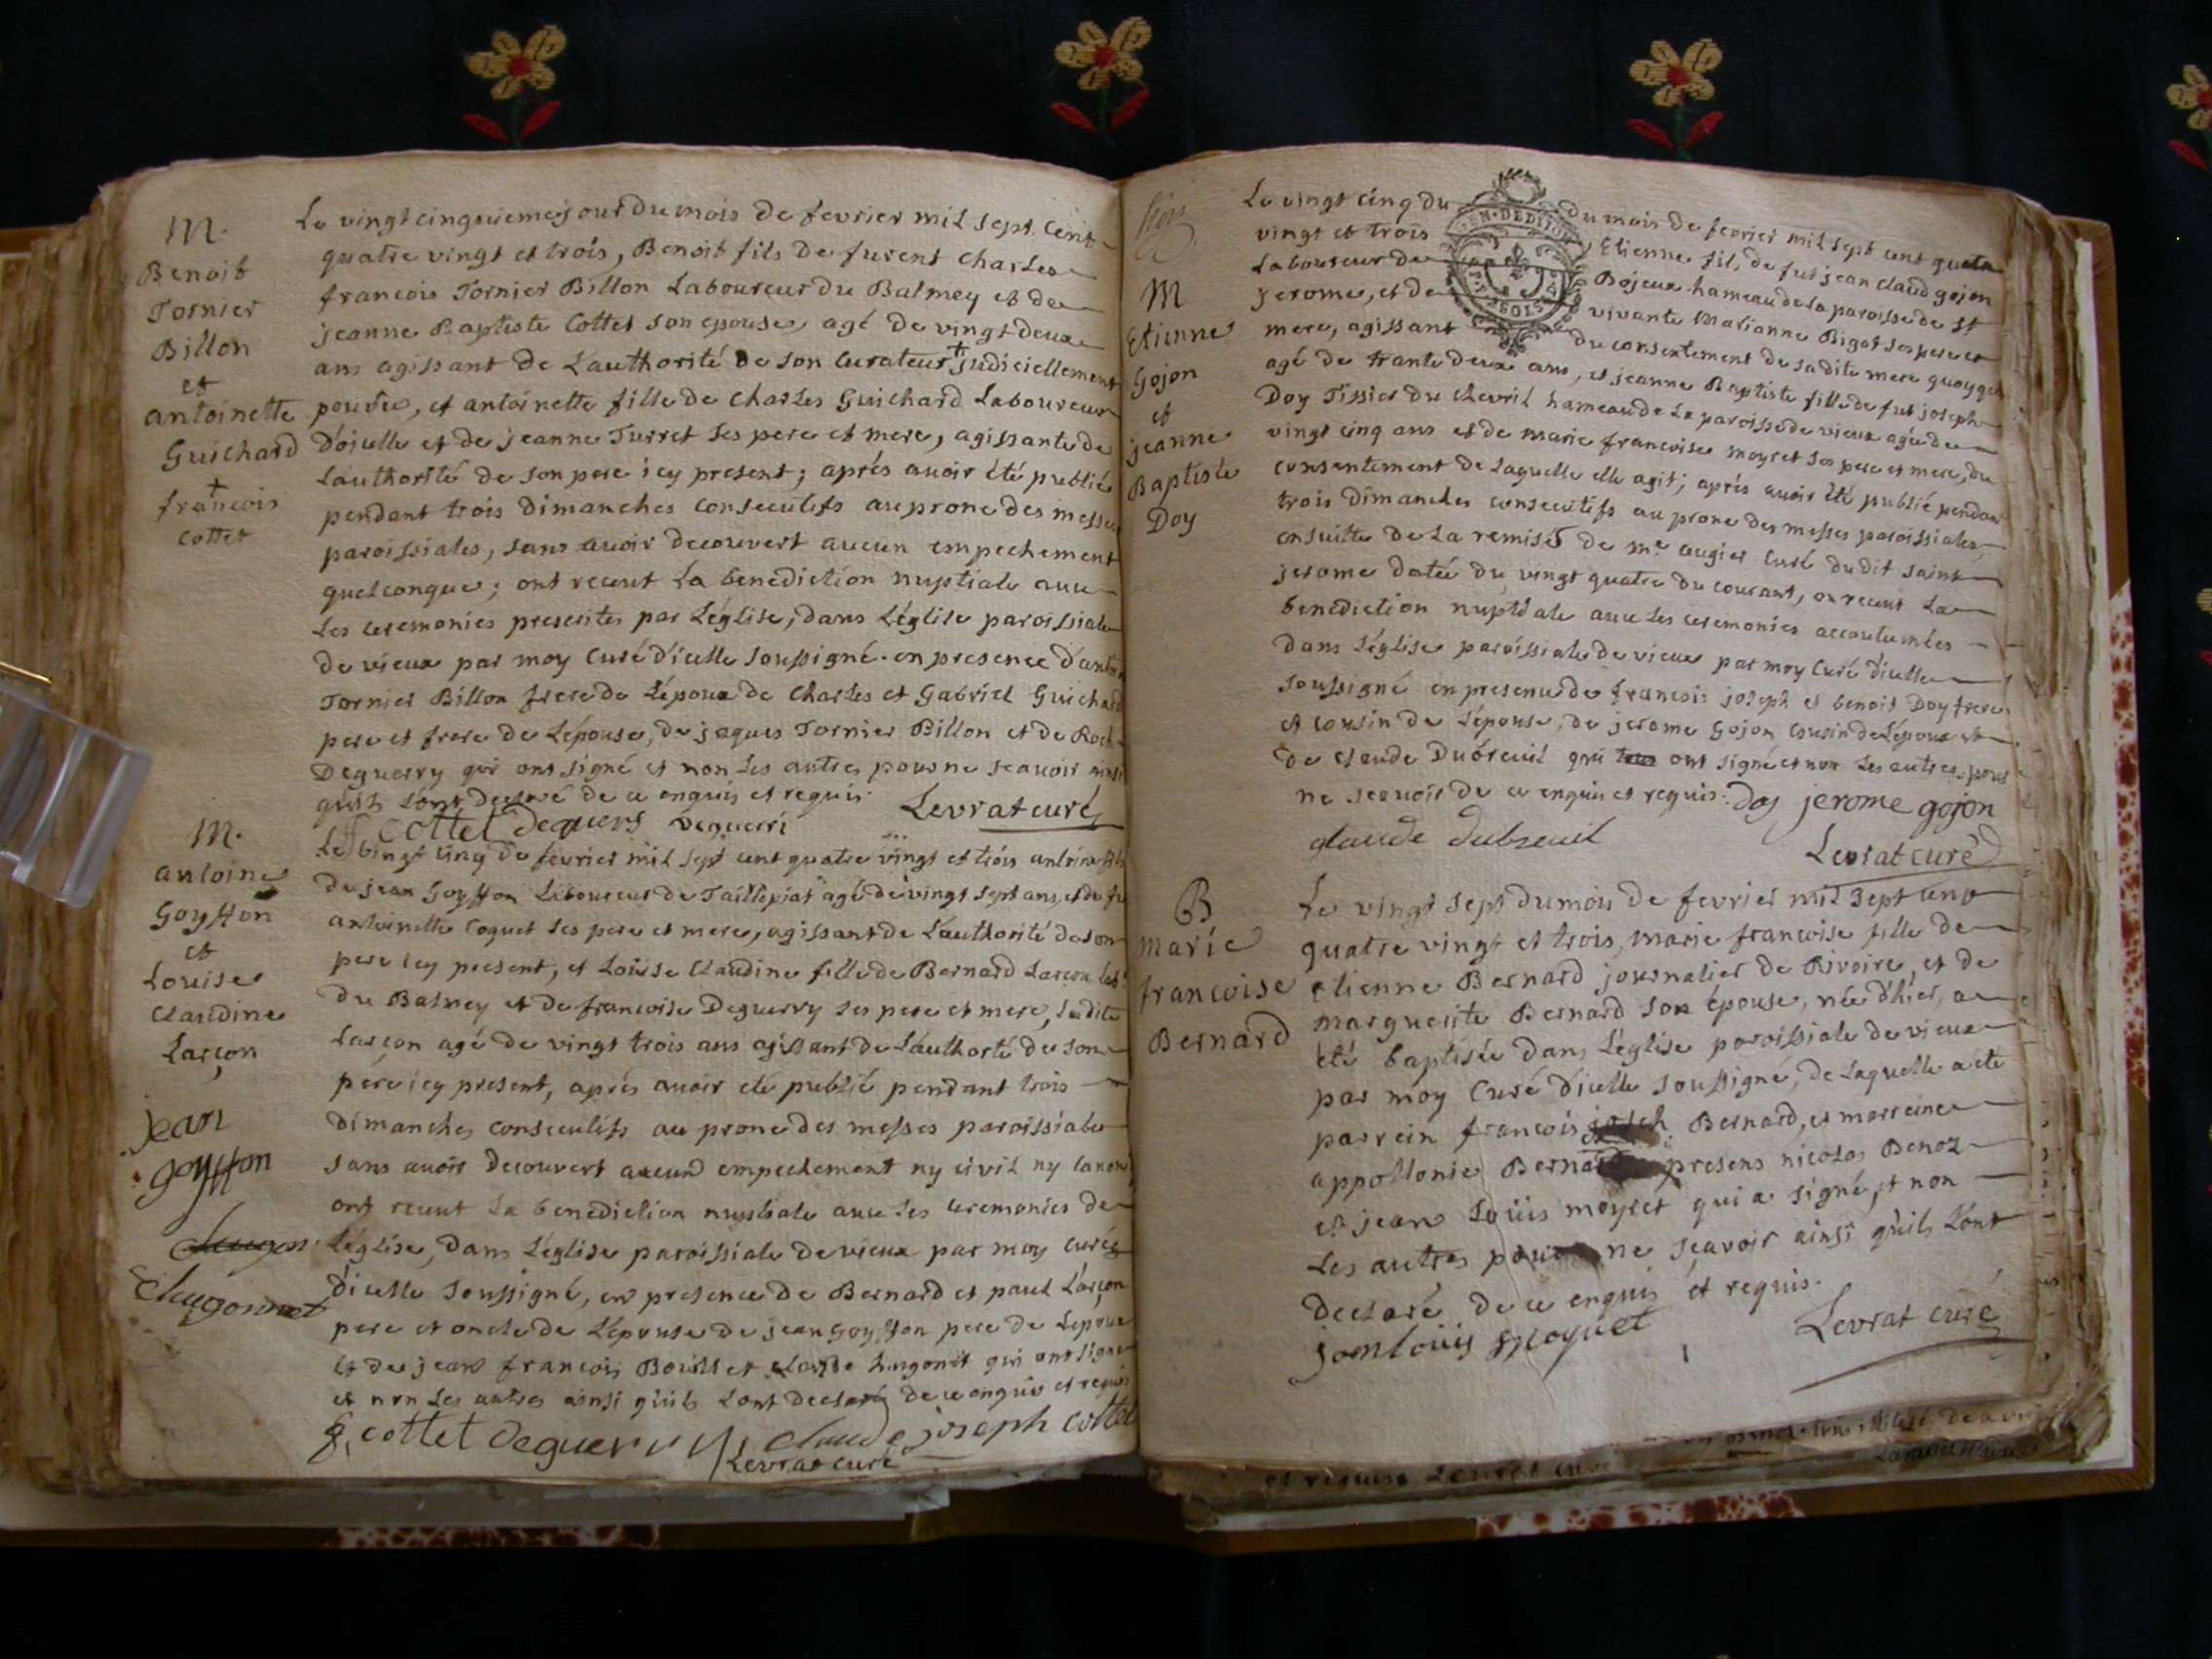 M.
Benoit
Tornier
Billon
et
antoinette
Guichard
+
francois
Cottet
Le vingt cinquieme jour du mois de fevrier mil sept cent
quatre vingt et trois, Benoit fils de furent Charles
francois Tornier Billon Laboureur du Balmey et de
jeanne Baptiste Cottet son epouse, agé de vingt deux
ans agissant de L'authorité de son Curateur + judiciellement
pourvu, et antoinette fille de Charles Guichard Laboureur
d'ojelle et de jeanne Turret ses pere et mere, agissante de
L'authorité de son pere icy present; aprés avoir été publié
pendant trois dimanches consecutifs au prone des messes
paroissiales, sans avoir decouvert aucun empechement
quelconque; ont receut La benediction nuptiale avec
Les ceremonies prescrites par L'église, dans L'église paroissiale
de vieux par moy Curé d'icelle soussigné. en presence
Tornier Billon frere de L'époux de Charles et Gabriel Guichard
pere et frere de L'épouse, de jaques Tornier Billon et de Roch
Deguerry qui ont signé et non Les autres pour ne scavoir ainsi
qu'ils L'ont declaré de ce enquis et requis. Levrat curé
f cottet Deguers Deguerri
M.
antoine
Goyffon
et
Louise
Claudine
Larçon
jean
goyffon
C hugonnet
Le vingt cinq de fevrier mil sept cent quatre vingt et trois antoine fils
de jean Goyffon Laboureur de Taillepiat agé de vingt sept ans, et de fu
antoinette Coquet ses pere et mere, agissant de L'authorité de son
pere icy present, et Loüise Claudine fille de Bernard Larçon
du Balmey et de francoise Deguerry ses pere et mere, Ladite
Larçon agé de vingt trois ans agissant de L'authorté de son
pére icy present, aprés avoir eté publié pendant trois
dimanches consecutifs au prone des messes paroissiales
sans avoir decouvert aucun empechement ny civil ny
ont receut La benediction nuptiale avec Les ceremonies de
L'église, dans L'église paroissiale de vieux par moy curé
d'icelle soussigné, en presence de Bernard et paul Larçon
pere et oncle de L'épouse de jean Goyffon pere de L'epoux
et de jean francois et Claude hugonit qui ont signé
et non Les autres ainsi qu'ils L'ont declaré de ce enquis et requis
f. cottet Deguerry claude joseph cottet
Levrat curé
M
Etienne
Gojon
et
jeanne
Baptiste
Doy
Le vingt cinq du du mois de fevrier mil sept cent quatre
vingt et trois Etienne fils de fut jean Claud gojon
Laboureur de Bojeux hameau de La paroisse de St
jerome, et de vivante Marianne Bigot ses pere et
mere, agissant du consentement de sa dite mere quoyque
agé de trante deux ans, et jeanne Baptiste fille de fut joseph
Doy Tissier du Chevril hameau de La paroisse de vieux agée de
vingt cinq ans et de marie francoise moyret ses pere et mere, du
consentement de Laquelle elle agit; aprés avoir été publié pendant
trois dimanches consecutifs au prone des messes paroissiales,
ensuitte de La remise de mr augier Curé dudit saint
jerome datée du vingt quatre du courant, on receut La
benediction nuptiale avec Les ceremonies accoutumées
dans L'église paroissiale de vieux par moy Curé d'icelle
soussigné en presence de francois joseph et benoit Doy frere
et cousin de L'épouse, de jerome Gojon cousin de L'époux et
de Claude Dubreuil qui ont signé et non Les autres pour
ne scavoir de ce enquis et requis. doy jerome gojon
glaude dubreuil
Levrat curé
B
marie
francoise
Bernard
Le vingt sept du mois de fevrier mil sept cent
quatre vingt et trois, marie francoise fille de
etienne Bernard journalier de Rivoire, et de
marguerite Bernard son épouse, née d'hier, a
été baptisée dans L'église paroissiale de vieux
par moy Curé d'icelle soussigné, de Laquelle a eté
parrein francois Bernard, et marreine
appollonie Bernard presens nicolas Benoz
et jean Loüis moyret qui a signé, et non
Les autres pour ne sçavoir ainsi qu'ils L'ont
declaré de ce enquis et requis.
jean loüis moyret Levrat curé
et requis Levrat curé